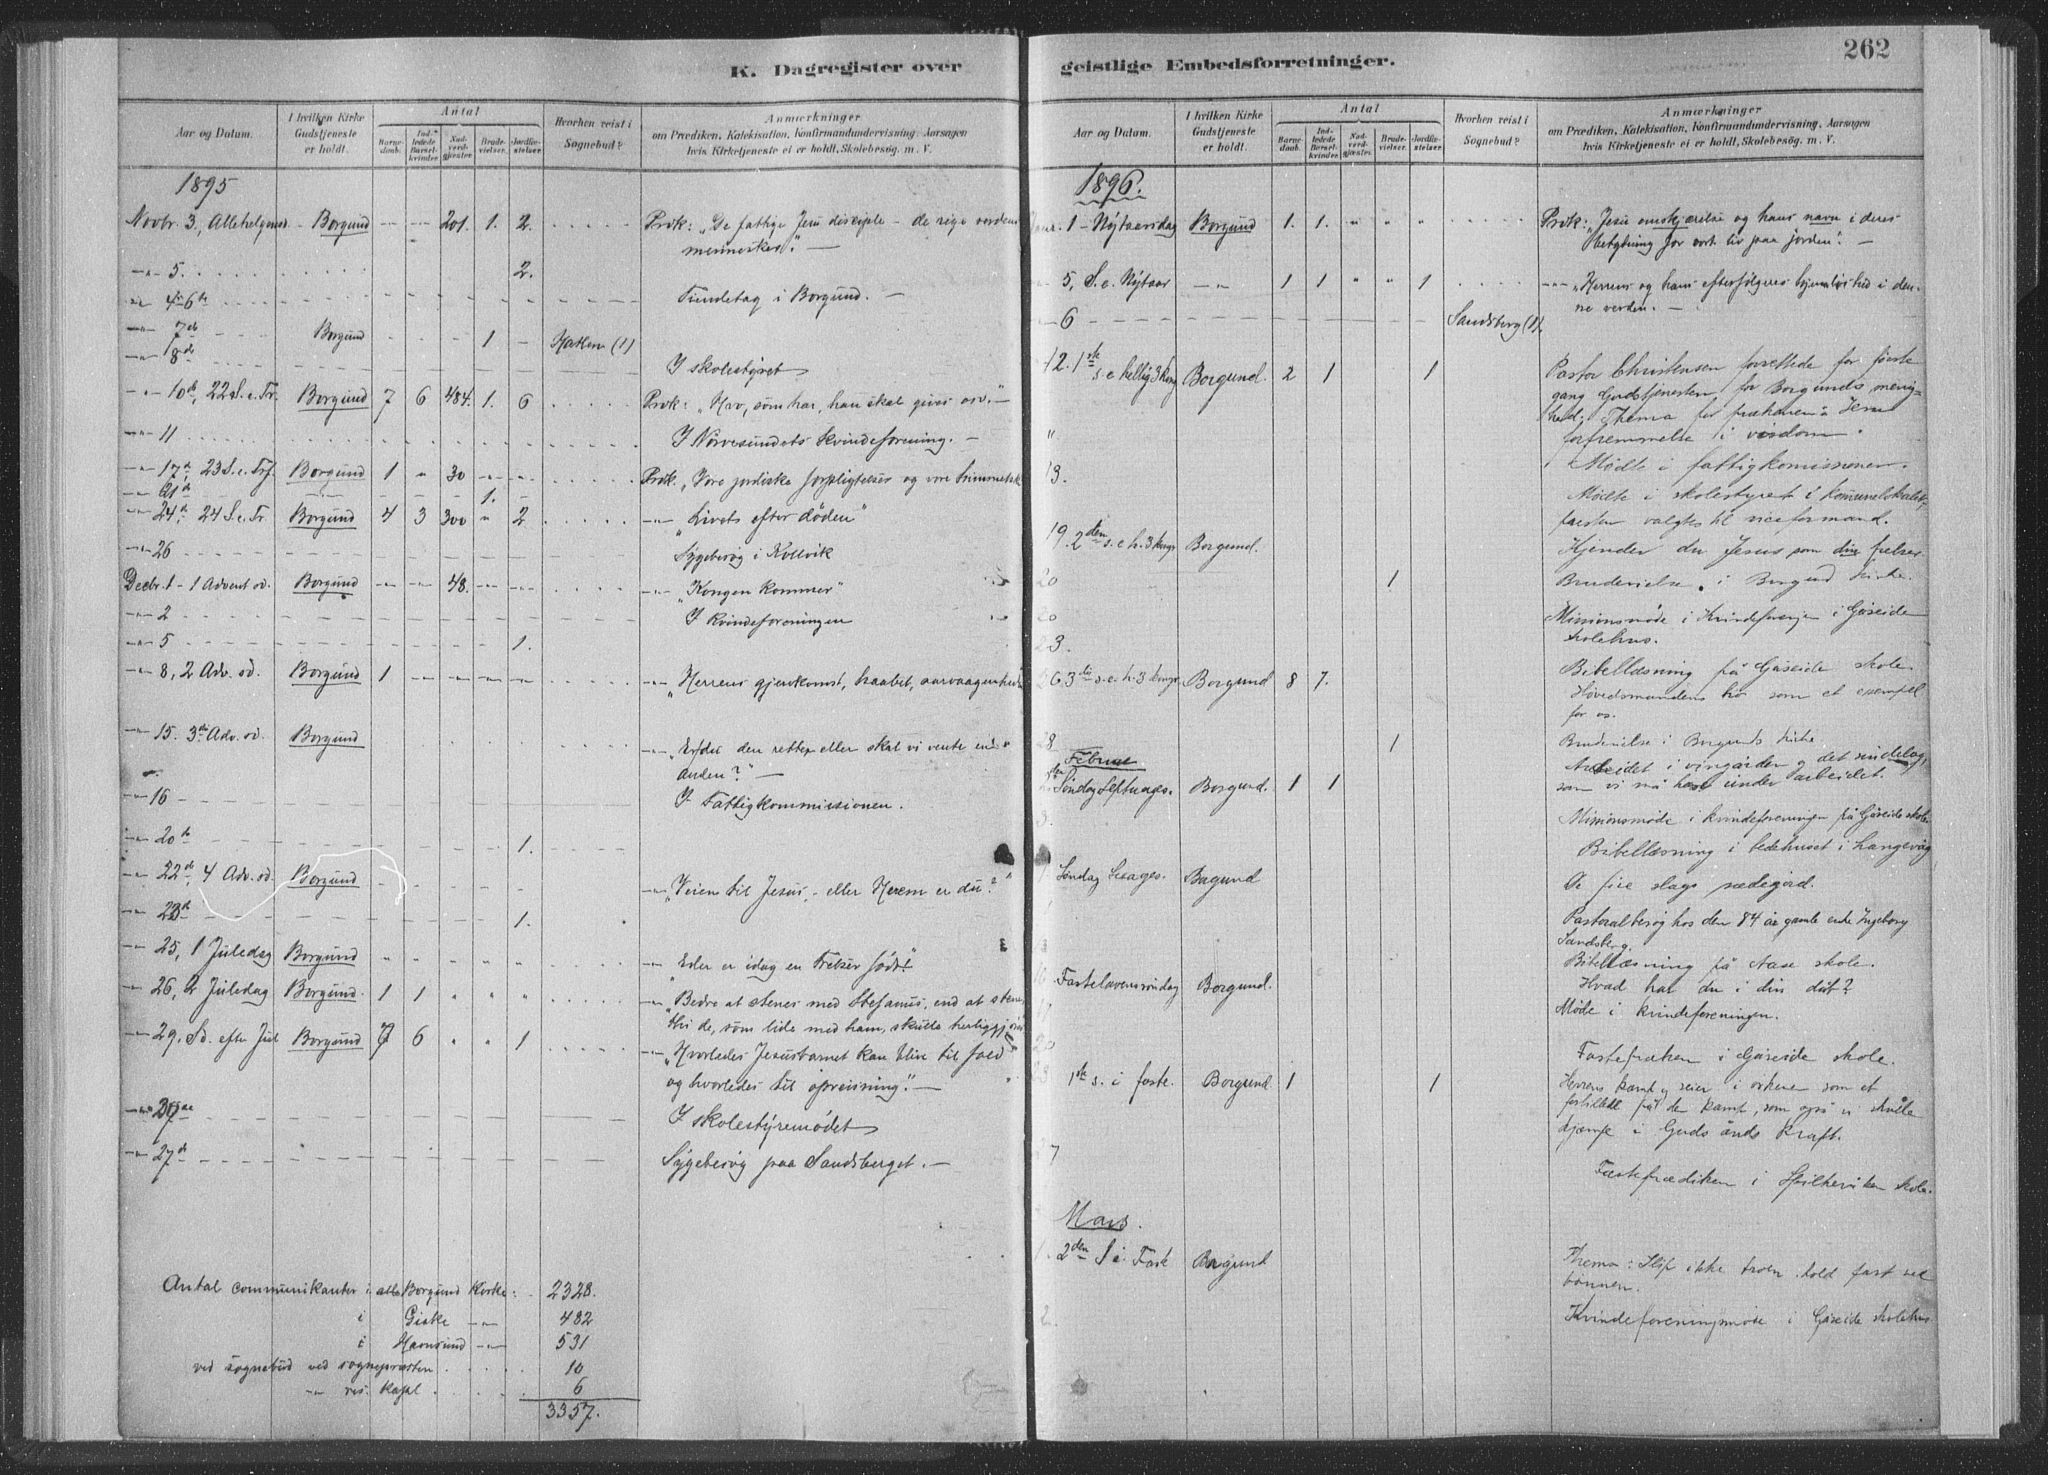 262
K. Dagregister over
geistlige Embedsforretninger.
Aar og Datum.
I hvilken Kirke Gudstjeneste er holdt.
Antal
Barnedaab.
Indledede Barselkvinder
Nadverdgjæster.
Brudevielser.
Jordfæstelser.
Hvorhen reist i Sognebud?
Anmærkninger
om Prædiken, Katekisation, Konfirmandundervisning, Aarsagen
hvis Kirketjeneste ei er holdt, Skolebesøg. m. V.
1895
Novbr. 3, Allehelgensd - Borgund - - 201. 1. 2. Prdk: "De fattige Jesu disciple - de rige verdens
mennesker." -
-"- 5. 2.
-"- 4-6te Tiendetag i Borgund. -
-"- 7de Borgund 1 - Hatlen (1)
-"- 18de I skolestyret
-"- 10de, 22 S. e. Tr. Borgund 7 6 484. 1. 6 Prdk: "Hvo, som har, han skal gives osv." -
-"- 11 I Nørvesundets Kvindeforening. -
-"- 17de, 23 S. e. Trf. Borgund 1 " 30 Prdk. "Vore jordiske forpligtelser og vore himmelske
-"- 21de 1.
-"- 24de, 24 S. e. Tr. Borgund 4 3 300 " 2 -"- "Livet efter døden"
-"- 26 Sygebesøg i Kolvik
Decbr. 1 - 1 Advent sd. Borgund 48. -"- "Kongen kommer"
-"- 2 I Kvindeforeningen
-"- 5 1.
-"- 8, 2 Adv. sd. Borgund 1 -"- "Herrens gjenkomst, haabet, aarvaagenheden
-"- 15. 3de Adv. sd. Borgund -"- "Er du den rette, eller skal vi vente en
anden?" -
-"- 16 I Fattigkommissionen.
-"- 20de 1.
-"- 22de, 4 Adv. sd. Borgund -"- "Veien til Jesus, - eller Hvem er du?"
-"- 23de 1.
-"- 25, 1 Juledag Borgund -"- Eder er idag en Frelser født!
-"- 26, 2 Juledag Borgund. 1 1 " " " -"- "Bedre at stenes med Stefanus, end at stene
thi de, som lide med ham, skulle herliggjøres
-"- 29. Sd. efter Jul Borgund 7 6 " " 1 -"- "Hvorledes Jesusbarnet kan blive til fald
og hvorledes til opreisning." -
-"- 30 I skolestyremødet
-"- 27de Sygebesøg paa Sandsberget. -
Antal communikanter i alt Borgund Kirke: 2328.
i Giske -"- 482
i Havnsund -"- 531
ved sognebud ved sognepræsten 10
-"- res. kapl. 6
3357.
Aar og Datum.
I hvilken Kirke Gudstjeneste er holdt.
Antal
Barnedaab.
Indledede Barselkvinder
Nadverdgjæster.
Brudevielser.
Jordfæstelser.
Hvorhen reist i Sognebud?
Anmærkninger
om Prædiken, Katekisation, Konfirmandundervisning, Aarsagen
hvis Kirketjeneste ei er holdt, Skolebesøg. m. V.
1896.
1 - Nytaarsdag Borgund 1. 1. " " " Prdk: "Jesu omskjærelse og hans navn i deres
betydning for vort liv paa jorden." -
5, S. e. Nytaar -"- 1 1 " " 1 -"- "Herrens og hans efterfølgeres hjemløshed i den-
ne verden. -
6 Sandsberg (1).
12. 1ste s. e hellig 3 kong Borgund. 2 1 1 Pastor Christensen forrettede for første
gang Gudstjenesten for Borgunds menig-
hed; Thema for prækenen: Jesu
forfremmelse i visdom.
" Møde i fattigkomissionen.
13. Møde i skolestyret i komunelokalet,
præsten valgtes til viceformand.
19. 2den s. e h. 3 kong Borgund. Kjender du Jesus som din frelser.
20 1 Brudevielse i Borgund kirke.
20 Missionsmøde i Kvindeforenigen i Gåseide
skolehus.
23. Bibellæsning på Gåseide skole.
26 3die s. e. h. 3 kong Borgund 8 7. Høvedsmandens tro som et exempel
for os.
28 1 Brudevielse i Borgunds kirke.
Februar
Søndag Septuages. Borgund. 1 1 Arbeidet i vingården og det sindelag,
som vi må have under arbeidet.
3. Missionsmøde i kvindeforeningen på Gåseide skole
Bibellæsning i bedehuset i Langevåg
Søndag Sexages. Borgund De fire slags sædejord.
Pastoralbesøg hos den 84 år gamle enke Ingeborg
Sandsberg.
13 Bibellæsning på Aase skole.
16 Fastelavenssøndag Borgund. Hvad har du i din dåb?
17 Møde i kvindeforeningen.
20 Fastepræken i Gåseide skole.
23 1ste s. i faste. Borgund. 1 1 Herrens kamp og seier i ørkenen som et
forbillede på den kamp, som også vi skulle
kjæmpe i Guds ånds kraft.
27 Fasteprædiken i Spilkeviken skole.
Mars.
1. 2den S i Fast Borgund Thema: Slip ikke troen, hold fast ved
bønnen.
2. Kvindeforeningsmøde i Gåseide skolehus